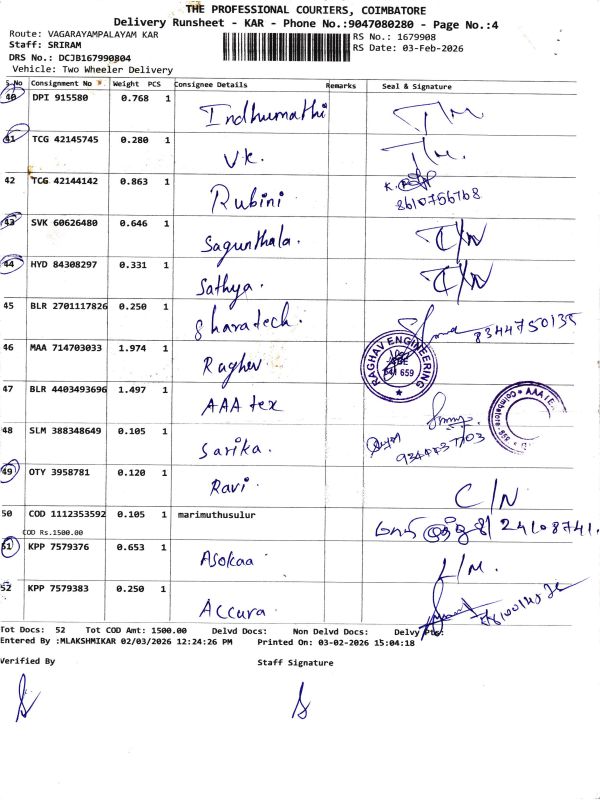 THE PROFESSIONAL COURIERS, COIMBATORE
Delivery Runsheet - KAR - Phone No.:9047080280 - Page No.:4
Route: VAGARAYAMPALAYAM KAR
RS No.: 1679908
Staff: SRIRAM
RS Date: 03-Feb-2026
DRS No.: DCJB167990804
Vehicle: Two Wheeler Delivery
S.No Consignment No Weight PCS Consignee Details Remarks Seal & Signature
40 DPI 915580 0.768 1 Indhumathi
41 TCG 42145745 0.280 1 Vk.
42 TCG 42144142 0.863 1 Rubini 8610756768
43 SVK 60626480 0.646 1 Sagunthala.
44 HYD 84308297 0.331 1 Sathya.
45 BLR 2701117826 0.250 1 Sharatech. 8344750135
46 MAA 714703033 1.974 1 Raghav RAGHAV ENGINEERING 641 659
47 BLR 4403493696 1.497 1 AAA tex
48 SLM 388348649 0.105 1 Sarika.
49 OTY 3958781 0.120 1 Ravi. C/N
50 COD 1112353592 0.105 1 marimuthusulur
COD Rs.1500.00
51 KPP 7579376 0.653 1 Asokaa
52 KPP 7579383 0.250 1 Accura
Tot Docs: 52 Tot COD Amt: 1500.00 Delvd Docs: Non Delvd Docs: Delvy Pts:
Entered By :MLAKSHMIKAR 02/03/2026 12:24:26 PM Printed On: 03-02-2026 15:04:18
Verified By Staff Signature